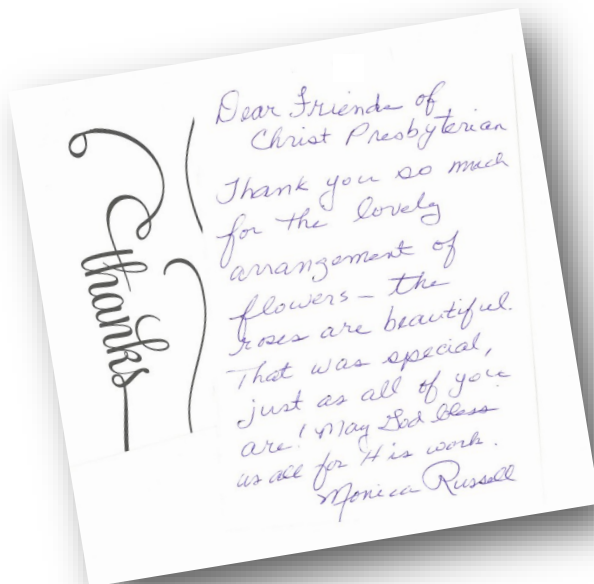 thanks
Dear Friends of
Christ Presbyterian
Thank you so much
for the lovely
arrangement of
flowers – the
roses are beautiful.
That was special,
just as all of you
are! May God bless
us all for His work.
Monica Russell